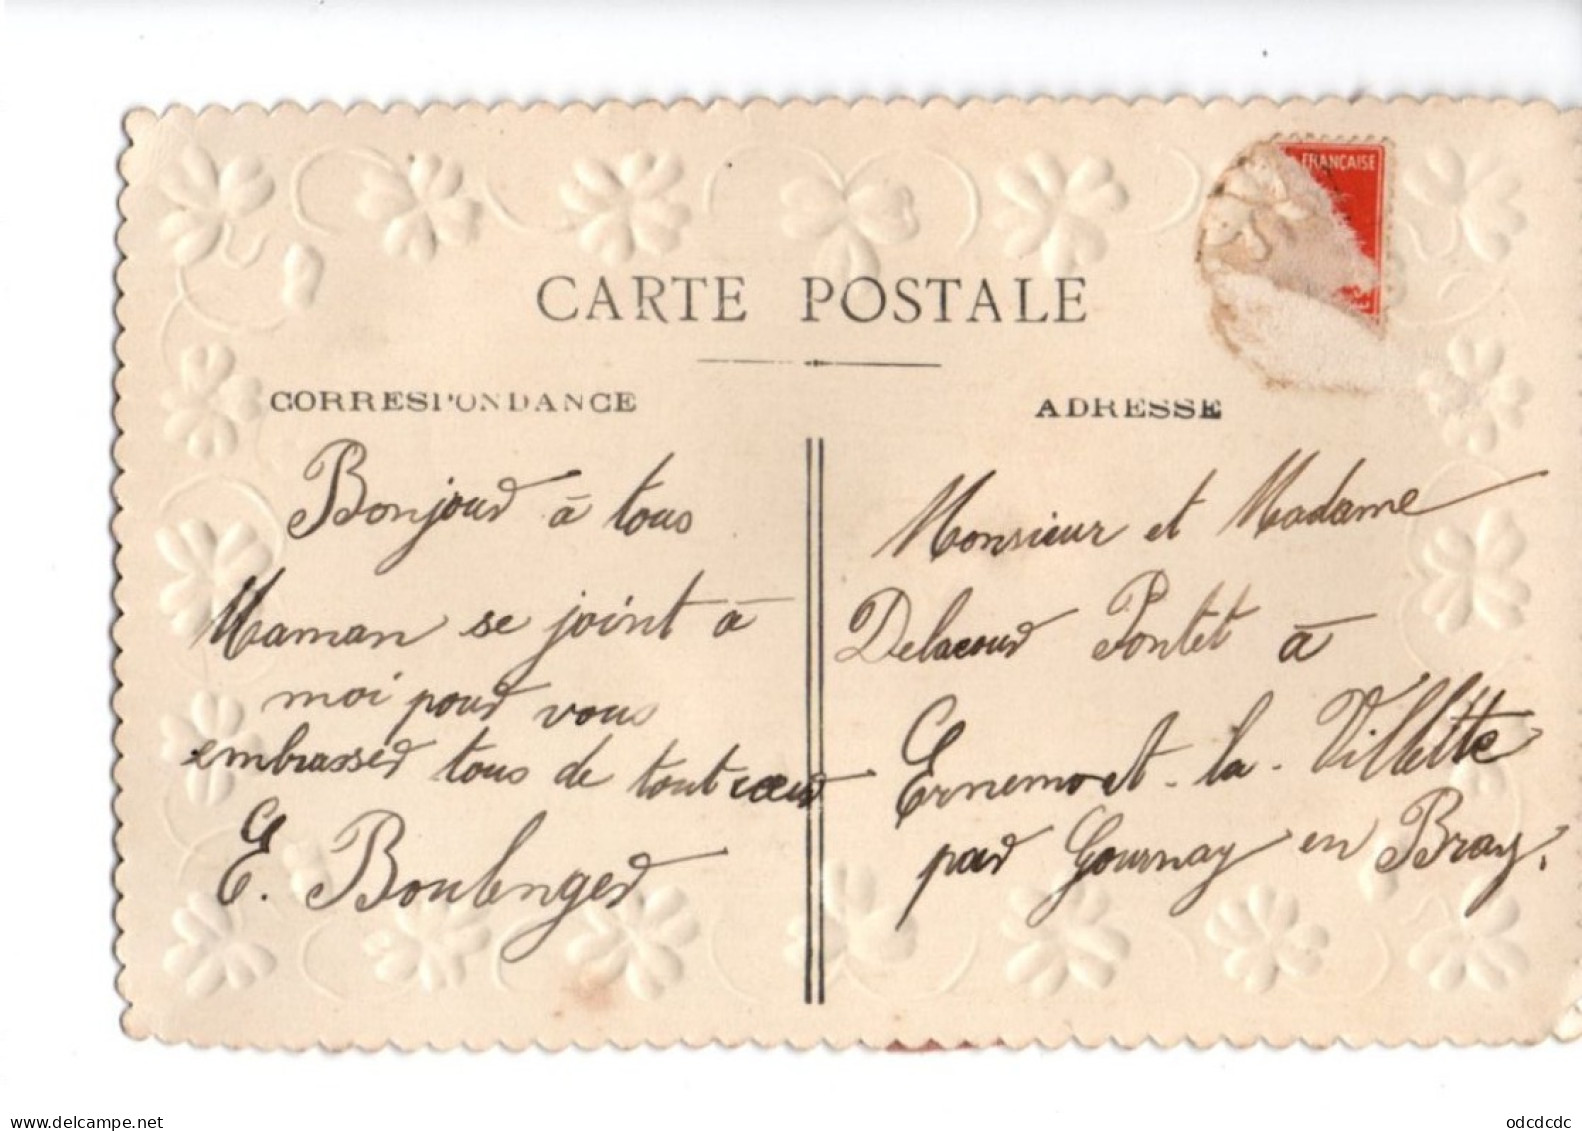 FRANÇAISE
CARTE POSTALE
CORRESPONDANCE
Bonjour à tous
Maman se joint à
moi pour vous
embrasser tous de tout cœur
E. Boulenger
ADRESSE
Monsieur et Madame
Delacour Pontet à
Ernemont-la-Villette
par Gournay en Bray.
www.delcampe.net
odcdcdc